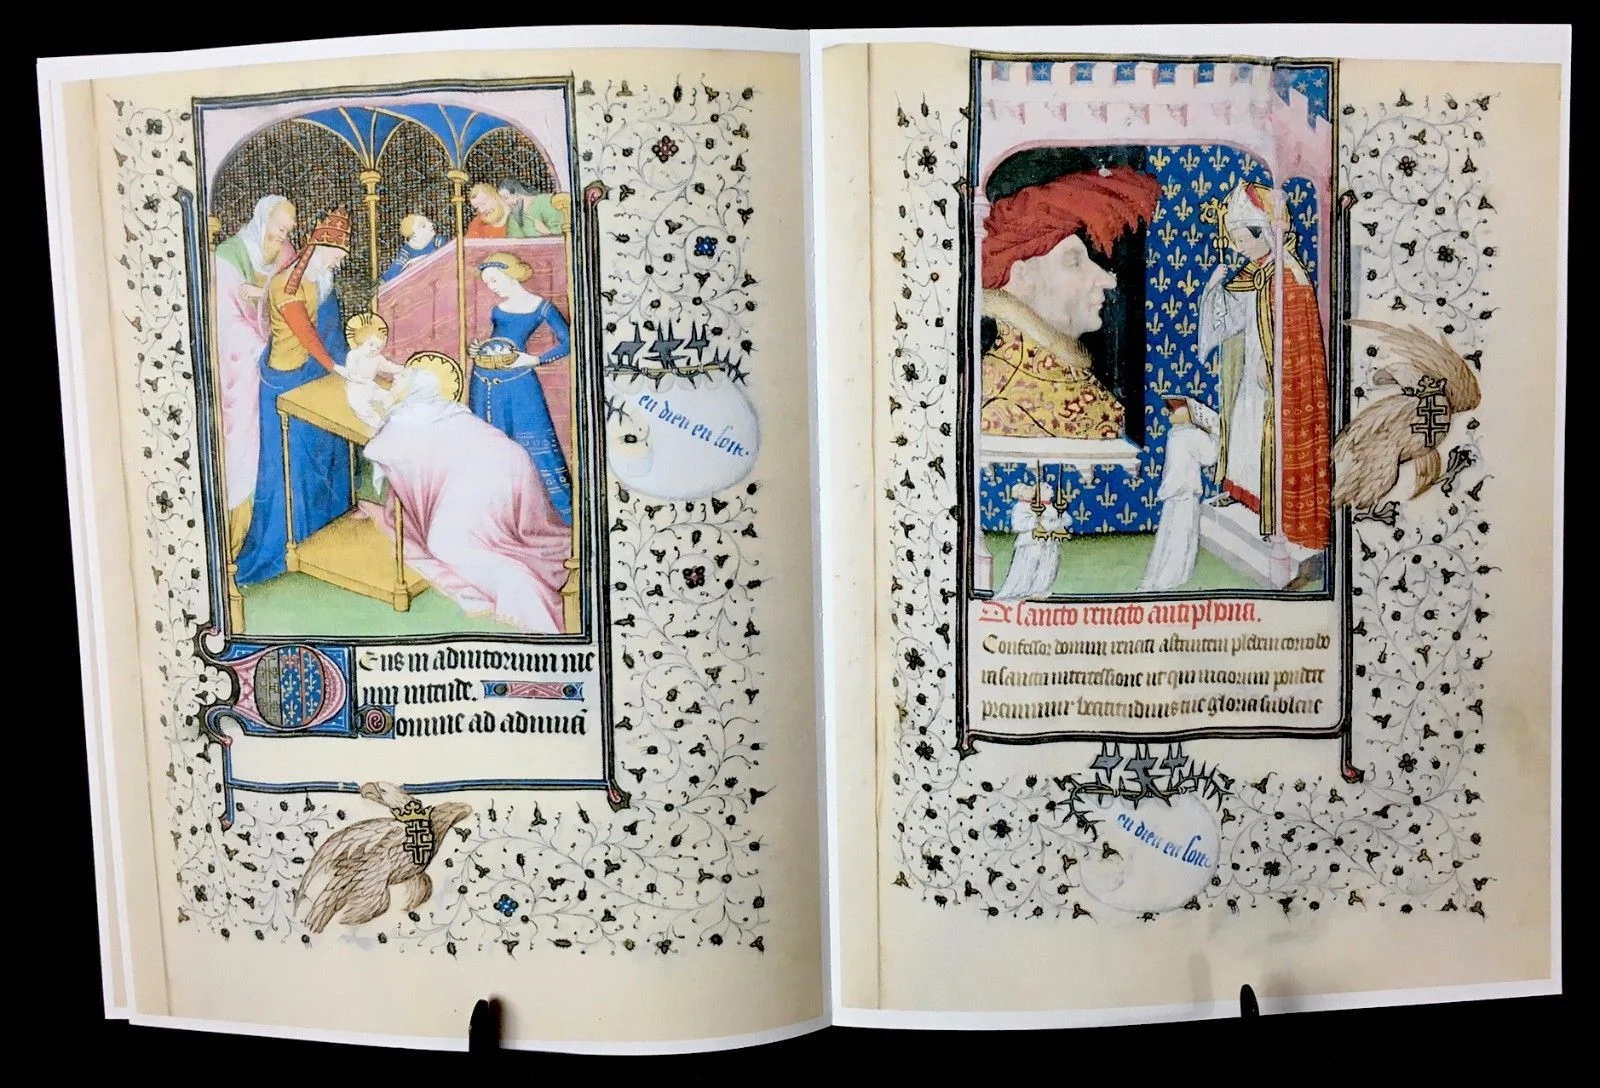 en dieu en soit.
Eus in adiutorium me
um intende.
Domine ad adiuua
De sancto renato antiphona.
Confessor domini renati astantem plebem corrobo
ra sancta intercessione ut qui uiciorum pondere
premimur beatitudinis tue gloria subleue
en dieu en soit